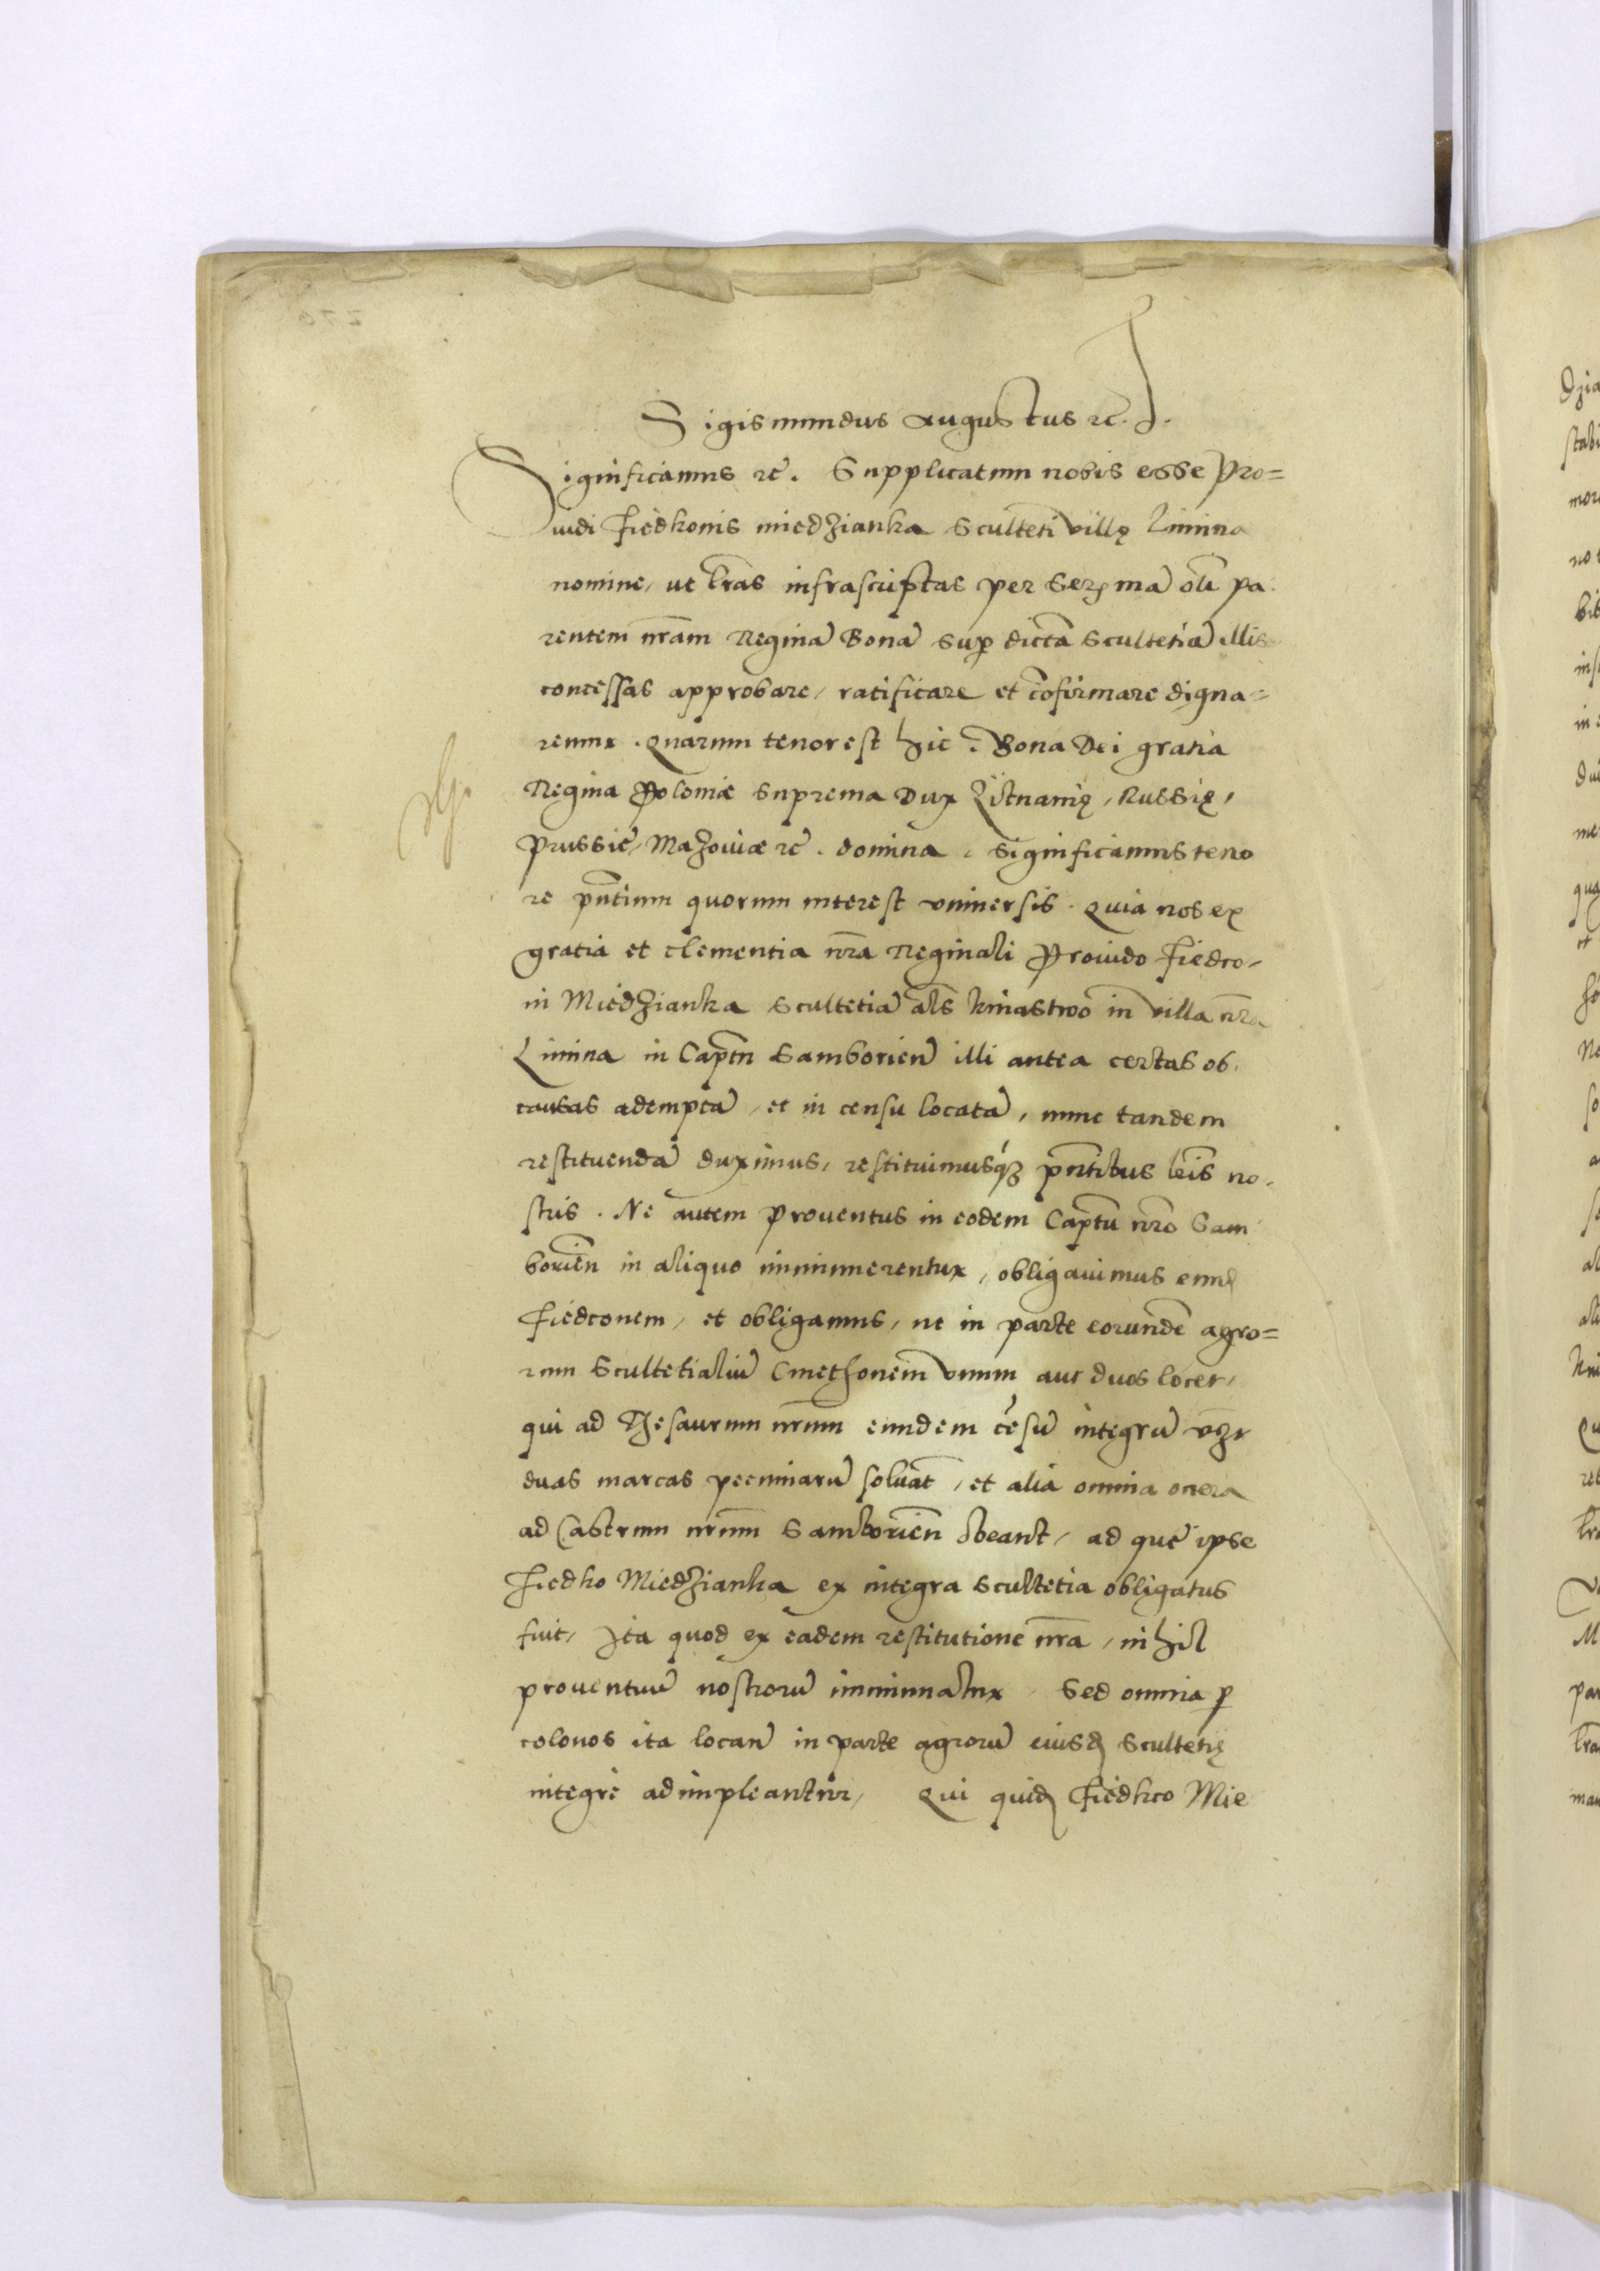 Sigismundus Augustus rc̃. J.
Significamus rc̃. Supplicatum nobis esse Pro=
uidi Fiedkonis Miedzianka Sculteti villę Linina
nomine, ut l̃ras infrascriptas per Serꝫmã olĩ pa
rentem nr̃am Reginã Bonã sup̱ dictã Scultetiã illis
concessas approbare, ratificare et cõfirmare digna=
remur. Quarum tenor est hic. Bona Dei gratia
Regina Poloniæ Suprema Dux Lituanię, Russię,
Prussiē, Mazouiæ rc̃. domina. Significamus teno
re pñtium quorum interest vniuersis. Quia nos ex
gratia et clementia nr̃a Reginali Prouido Fiedco,
ni Miedzianka Scultetiã al̃s kniastwo in villa nr̃a
Linina in Captñ Samborieñ illi antea certas ob,
causas ademptã, et in censu locatã, nunc tandem
restituendã duximus, restituimusqꝫ pñtibus l̃ris no,
stris. Ne autem prouentus in eodem Captũ nr̃o Sam
borieñ in aliquo imminuerentur, obligauimus eund̃
Fiedconem, et obligamus, ut in parte eorundẽ agro=
rum Scultetialiũ Cmethonem vnum aut duos locet,
qui ad Thesaurum nr̃um eundem cẽsũ integrũ vꝫt
duas marcas pecuniarũ soluãt, et alia omnia onera
ad Castrum nr̃um Samborieñ obeant, ad quẽ ipse
Fiedko Miedzianka ex integra Scultetia obligatus
fuit, Ita quod ex eadem restitutione nr̃a, nihil
prouentuũ nostrorũ imminuatur, Sed omnia p̱
colonos ita locañ in parte agrorũ eiusd̃ Scultetię
integre adimpleantur, Qui quid̃ Fiedkco Mie